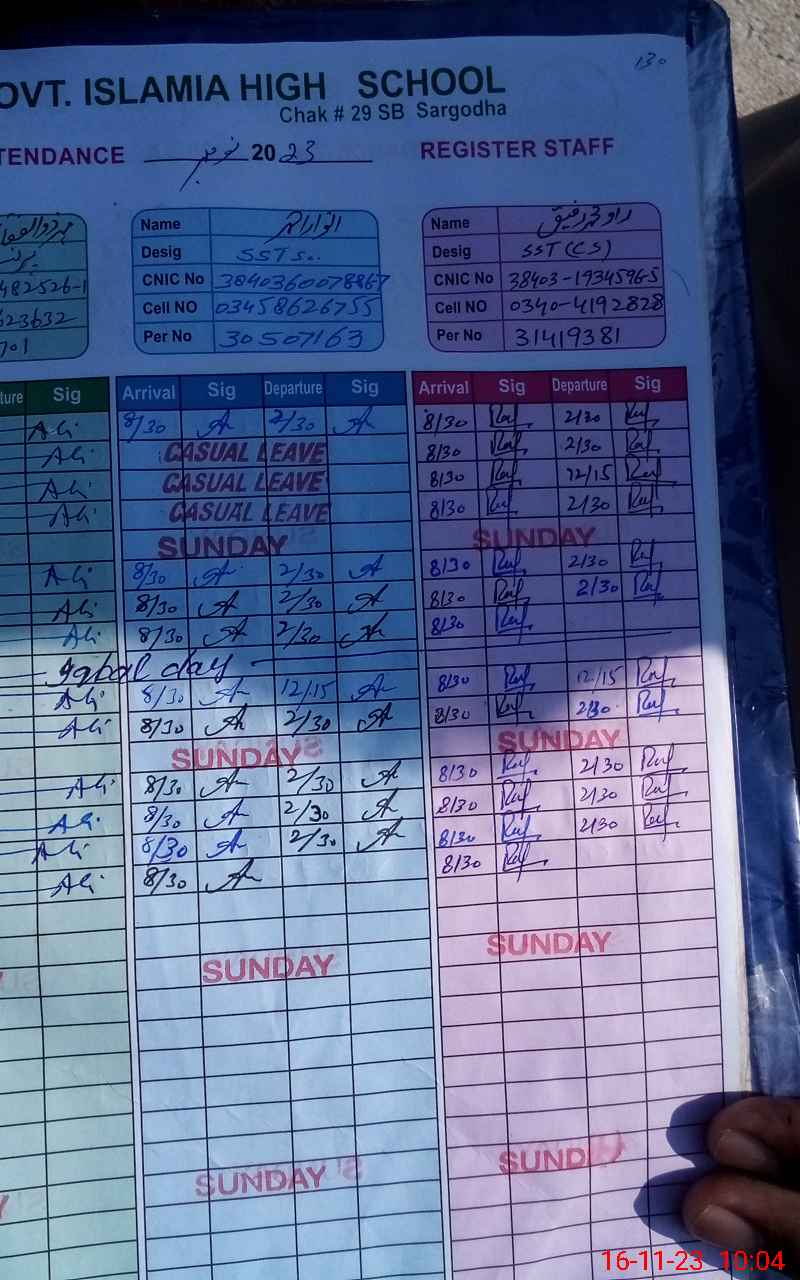 130
OVT. ISLAMIA HIGH SCHOOL
Chak # 29 SB Sargodha
TENDANCE نومبر 2023 REGISTER STAFF
482526-1
623632
701
Name انوار احمد
Desig SSTs..
CNIC No 3840360078867
Cell NO 03458626755
Per No 30507163
Name راؤ محمد رفیق
Desig SST (CS)
CNIC No 38403-1934596-5
Cell NO 0340-4192828
Per No 31419381
ture Sig Arrival Sig Departure Sig Arrival Sig Departure Sig
Ali 8/30 A 2/30 A 8/30 Raf 2/30 Raf
Ali CASUAL LEAVE 8/30 Raf 2/30 Raf
Ali CASUAL LEAVE 8/30 Raf 12/15 Raf
Ali CASUAL LEAVE 8/30 Raf 2/30 Raf
SUNDAY SUNDAY
Ali 8/30 A 2/30 A 8/30 Raf 2/30 Raf
Ali 8/30 A 2/30 A 8/30 Raf 2/30 Raf
Ali 8/30 A 2/30 A 8/30 Raf
Iqbal day
Ali 8/30 A 12/15 A 8/30 Raf 12/15 Raf
Ali 8/30 A 2/30 A 8/30 Raf 2/30 Raf
SUNDAY SUNDAY
Ali 8/30 A 2/30 A 8/30 Raf 2/30 Raf
Ali 8/30 A 2/30 A 8/30 Raf 2/30 Raf
Ali 8/30 A 2/30 A 8/30 Raf 2/30 Raf
Ali 8/30 A 8/30 Raf
SUNDAY SUNDAY
SUNDAY SUNDAY
16-11-23 10:04